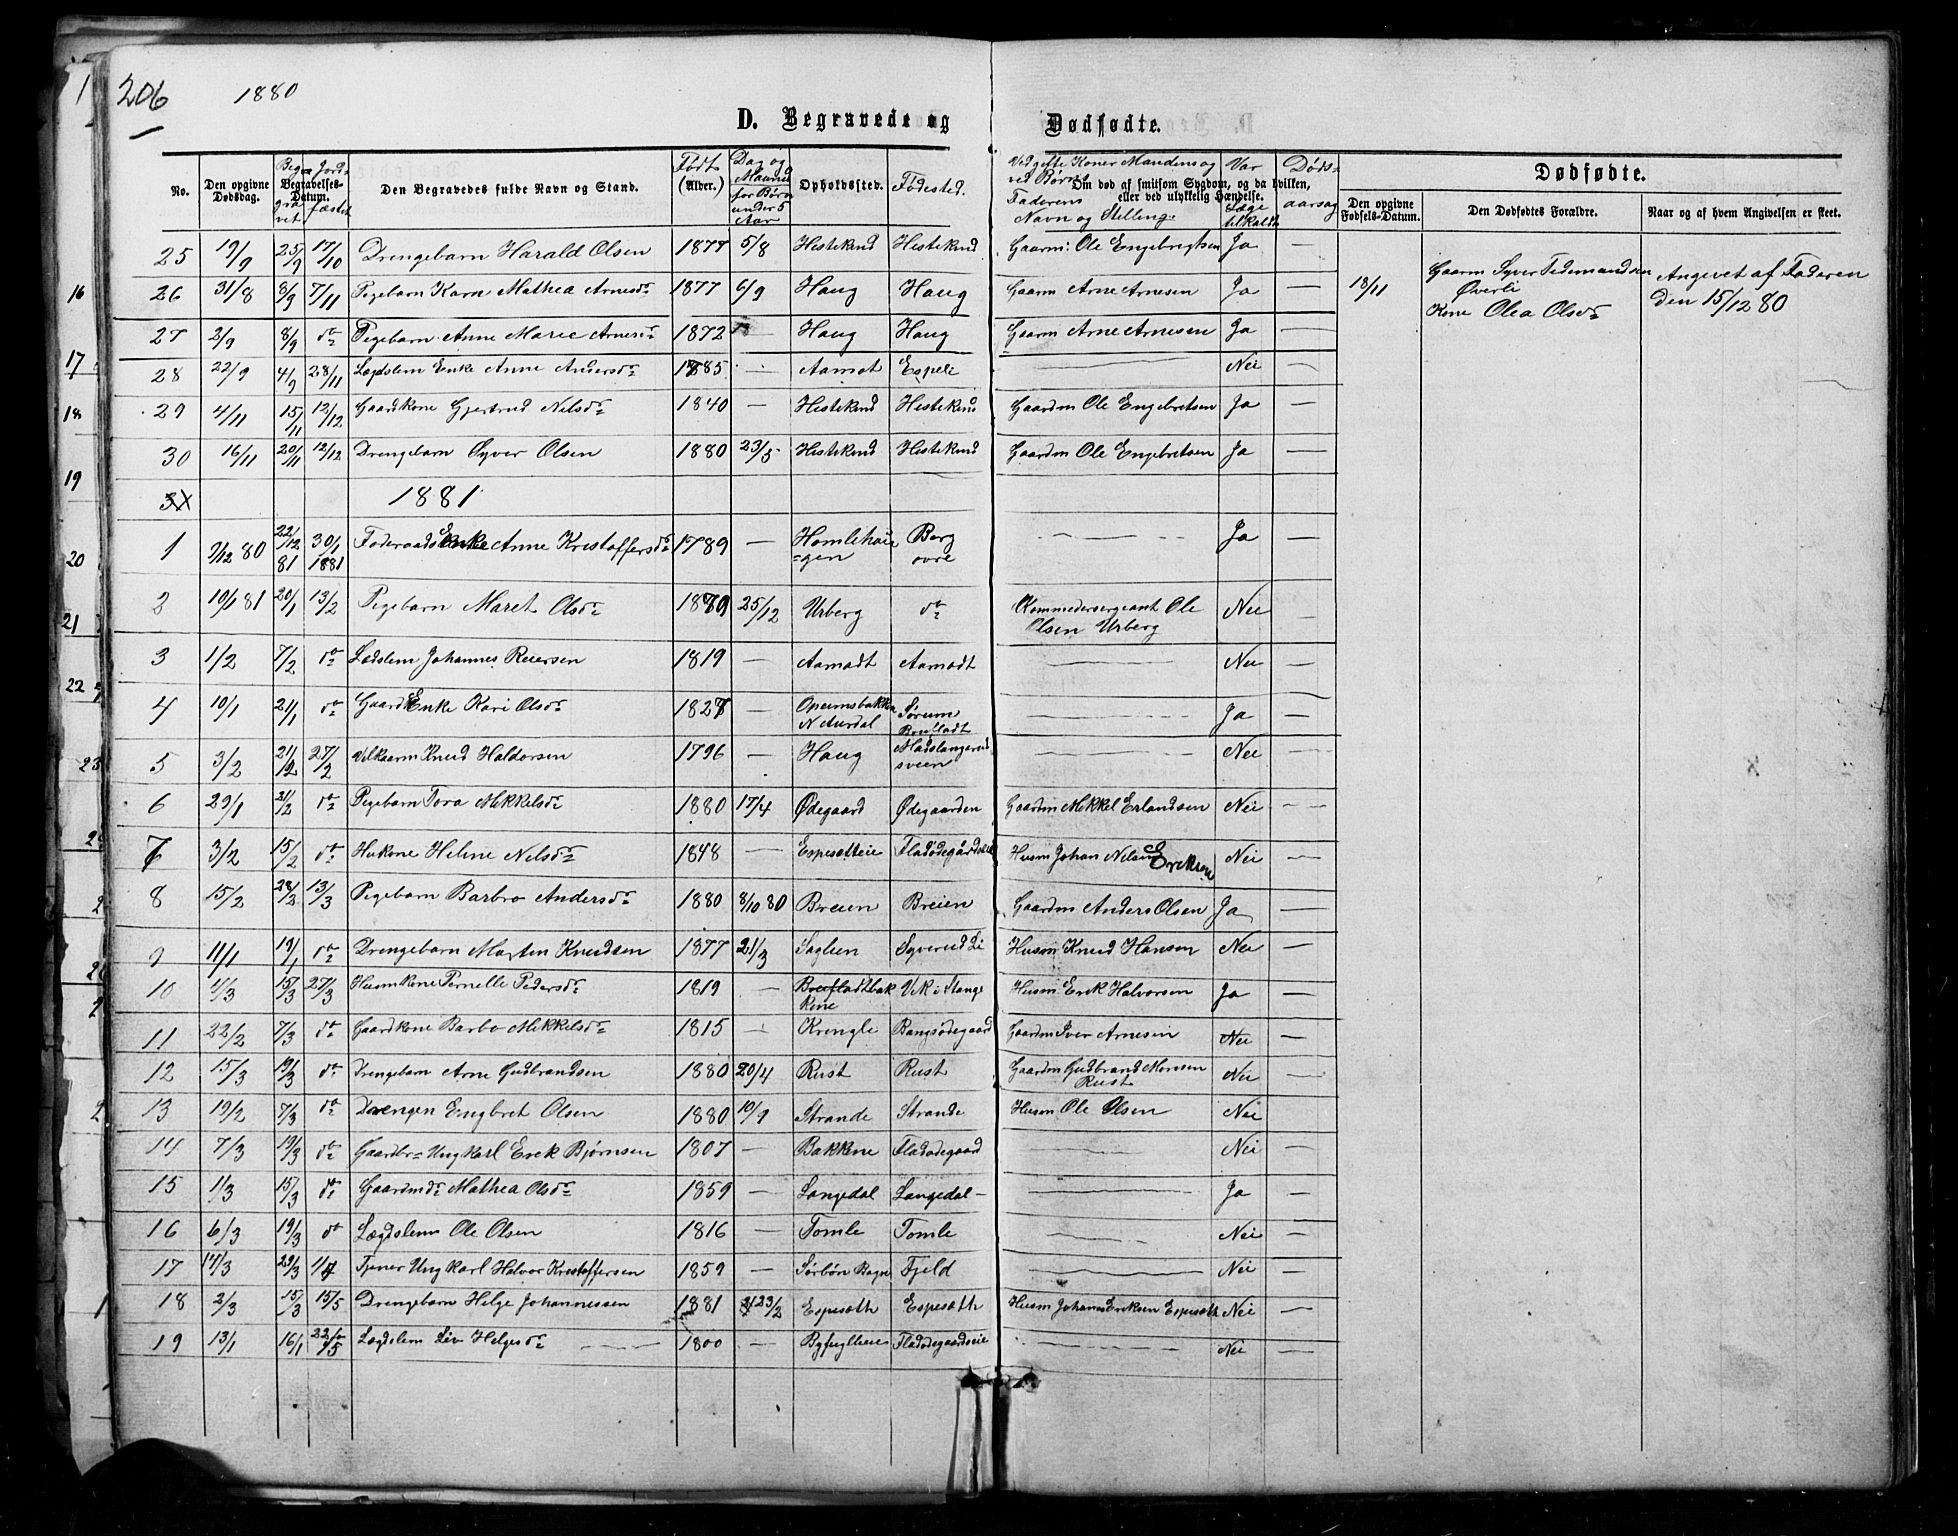 206 1880
D. Begravede og Dødfødte.
No. | Den opgivne Dødsdag. | Begravet | Begravelses-Datum. | Jordfæstet | Den Begravedes fulde Navn og Stand. | Født (Alder.) | Dag og Maaned for Børn under 5 Aar | Opholdssted. | Fødested. | Ved gifte Koner Mandens og ved Børn Faderens Navn og Stilling. | Om død af smitsom Sygdom, og da hvilken, eller ved ulykkelig Hændelse. | Var Læge tilkaldt | Dødsaarsag | Dødfødte. | Den opgivne Fødsels-Datum. | Den Dødfødtes Forældre. | Naar og af hvem Angivelsen er skeet.
25 19/9 25/9 17/10 Drengebarn Harald Olsen 1877 5/8 Hestekind Hestekind Gaarm: Ole Engebregtsen Ja —
18/11 Gaarm Syver Tidemandsen Øverli Kone Olea Olsdr Angivet af Faderen den 15/12 80
26 31/8 8/9 7/11 Pigebarn Karn Mathea Arnesdr 1877 6/9 Haug Haug Gaarm Arne Arnesen Ja —
27 2/9 8/9 do Pigebarn Anne Marie Arnesdr 1872 — Haug Haug Gaarm Arne Arnesen Ja —
28 22/9 4/9 28/11 Lægdslem Enke Anne Andersdr 1785 — Aamot Espeli — Nei —
29 4/11 15/11 12/12 Gaardkone Gjertrud Nilsdr 1840 — Hestekind Hestekind Gaardm Ole Engebretsen Ja —
30 16/11 20/11 12/12 Drengebarn Syver Olsen 1880 23/5 Hestekind Hestekind Gaardm Ole Engebretsen Ja —
31 1881
1 2/12 80 22/12 81 30/1 1881 Føderaads Enke Anne Kristoffersdr 1789 — Homlehaugen Berg øvre — Ja —
2 10/1 81 20/1 13/2 Pigebarn Maret Olsdr 1879 25/12 Urberg do Kommedersergeant Ole Olsen Urberg Nei —
3 1/2 7/2 do Lædslem Johannes Reiersen 1819 — Aamodt Aamodt — Nei —
4 10/1 21/1 do Gaardk Enke Kari Olsdr 1827 — N Aurdal Sørum Brufladt — Ja —
5 3/2 21/2 27/2 Vilkaarm Knud Haldorsen 1796 — Haug — Nei
6 29/1 21/2 do Pigebarn Tora Mikkelsdr 1880 17/4 Ødegaard Ødegaarden Gaardm Mikkel Erlandsen Nei —
7 3/2 15/2 do Hukone Heline Nilsdr 1848 — Espesetteie Fladødegårdseie Husm Johan Nilsen Eriksen Nei —
8 15/2 28/2 13/3 Pigebarn Barbro Andersdr 1880 8/10 80 Breien Breien Gaardm Anders Olsen Ja —
9 11/1 19/1 do Drengebarn Morten Knudsen 1877 21/3 Saglien Syverud Li Husm Knud Hansen Nei —
10 4/3 15/3 27/3 Husmkone Pernelle Pedersdr 1819 — Bruflodtbakkene Vik i Stange Husm: Erik Halvorsen Ja —
11 22/2 7/3 do Gaardkone Barbo Mikkelsdr 1815 — Krengle Bangsødegaard Gaardm Iver Arnesen Nei —
12 15/3 19/3 do Drengebarn Arne Gudbrandsen 1880 20/4 Rust Rust Gaardm Gudbrand Monsen Rust Nei —
13 19/2 7/3 do Drengen Engbret Olsen 1880 10/9 Strande Strande Husm Ole Olsen Nei —
14 7/3 19/3 do Gaardbr= Ungkarl Erik Bjørnsen 1807 — Bakkene Fladødegaard — Nei —
15 1/3 15/3 do Gaardmdr Mathea Olsdr 1859 — Langedal Langedal — Ja —
16 6/3 19/3 do Lægdslem Ole Olsen 1816 — Tomle Tomle — Nei —
17 14/3 29/3 Tjener Ungkarl Halvor Kristoffersen 1859 — Sørbøn Bagn Fjeld — Nei —
18 2/3 15/3 15/5 Drengebarn Helge Johannessen 1881 23/2 Espesæth Espesæth Husm Johan Eriksen Espesæth Nei —
19 13/1 16/1 Lægdslem Liv Helgesdr 1800 — Byfuglleie Fladødegaardseie — Nei —